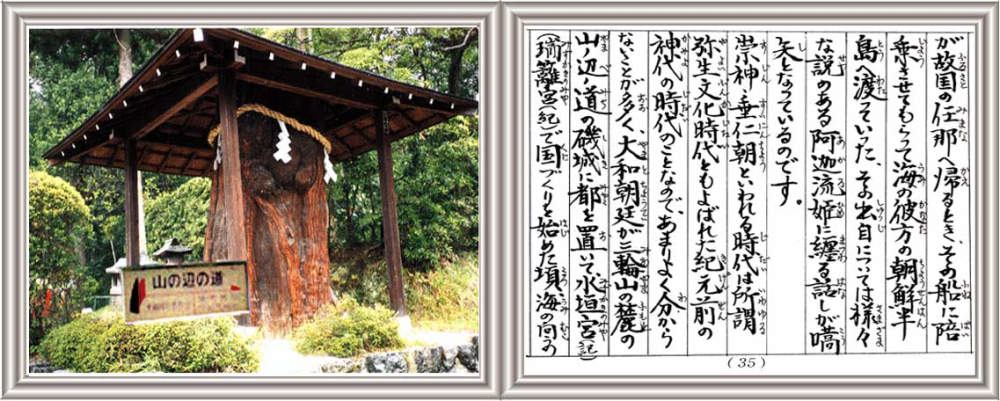 山の辺の道
が故国の任那へ帰るとき、その船に陪
乗させてもらって海の彼方の朝鮮半
島へ渡っていった、その出自については様々
な説のある阿迦流姫に纏る話しが嚆
矢となっているのです。
崇神・垂仁朝といわれる時代は所謂
弥生文化時代ともよばれた紀元前の
神代の時代のことなので、あまりよく分から
ないことが多く、大和朝廷が三輪山の麓の
山ノ辺ノ道の磯城に都を置いて水垣宮(記)
(瑞籬宮(紀)で国づくりを始めた頃、海の向う
(35)